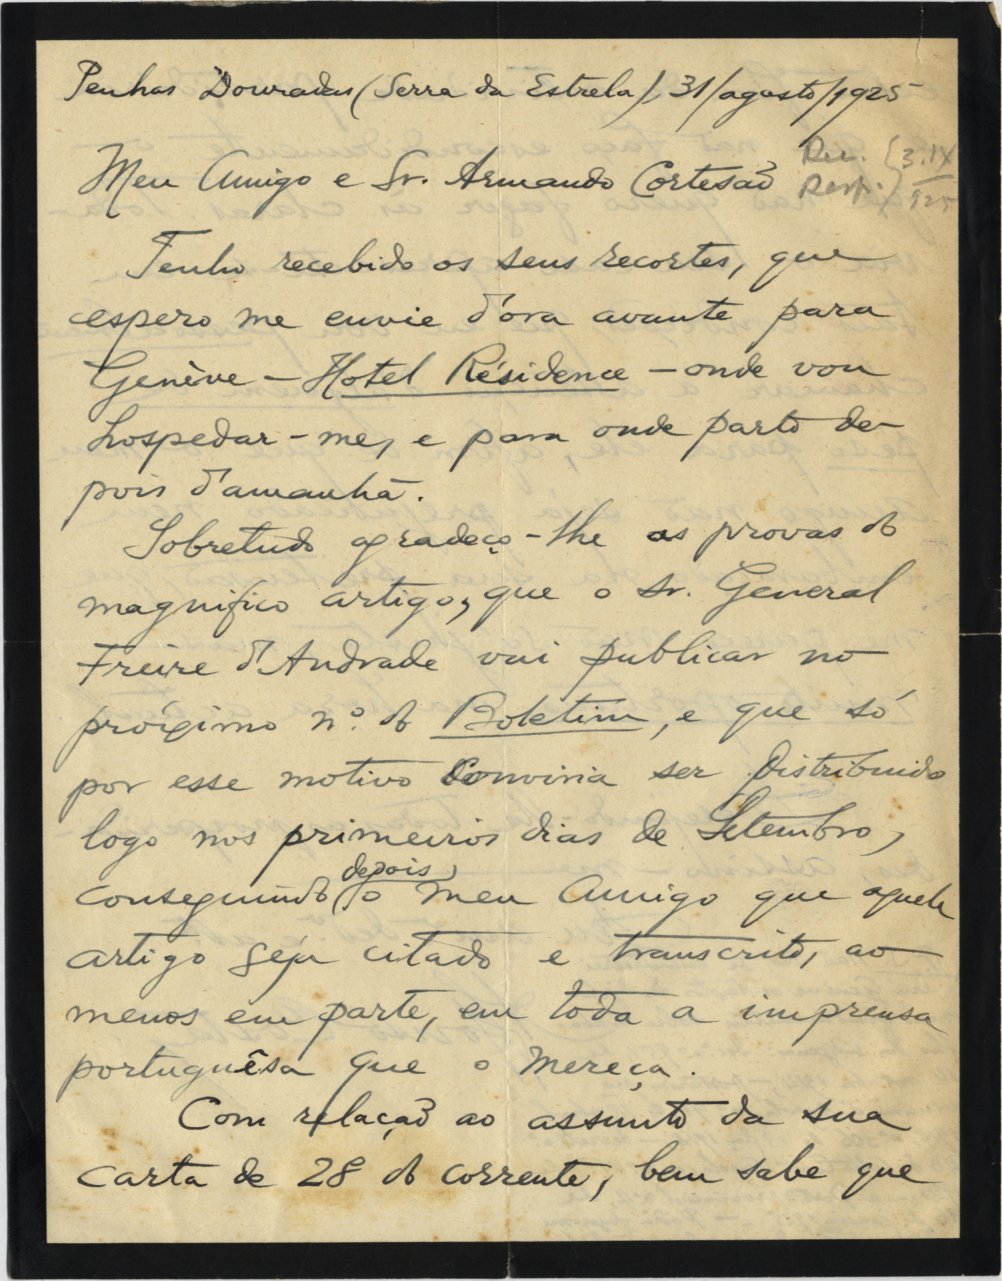 Penhas Douradas (Serra da Estrela), 31/agosto/1925
Meu Amigo e Sr. Armando Cortesão
Rec. } 3.IX
Resp. } 925
Tenho recebido os seus recortes, que
espero me envie d'ora avante para
Genève - Hotel Résidence - onde vou
hospedar-me, e para onde parto de-
pois d'amanhã.
Sobretudo agradeço-lhe as provas do
magnifico artigo, que o sr. General
Freire d'Andrade vai publicar no
proximo nº. do Boletim, e que só
por esse motivo conviria ser distribuido
logo nos primeiros dias de Setembro,
conseguindo (depois) o meu Amigo que aquele
artigo seja citado e transcrito, ao
menos em parte, em toda a imprensa
portuguêsa que o mereça.
Com relação ao assunto da sua
carta de 28 do corrente, bem sabe que